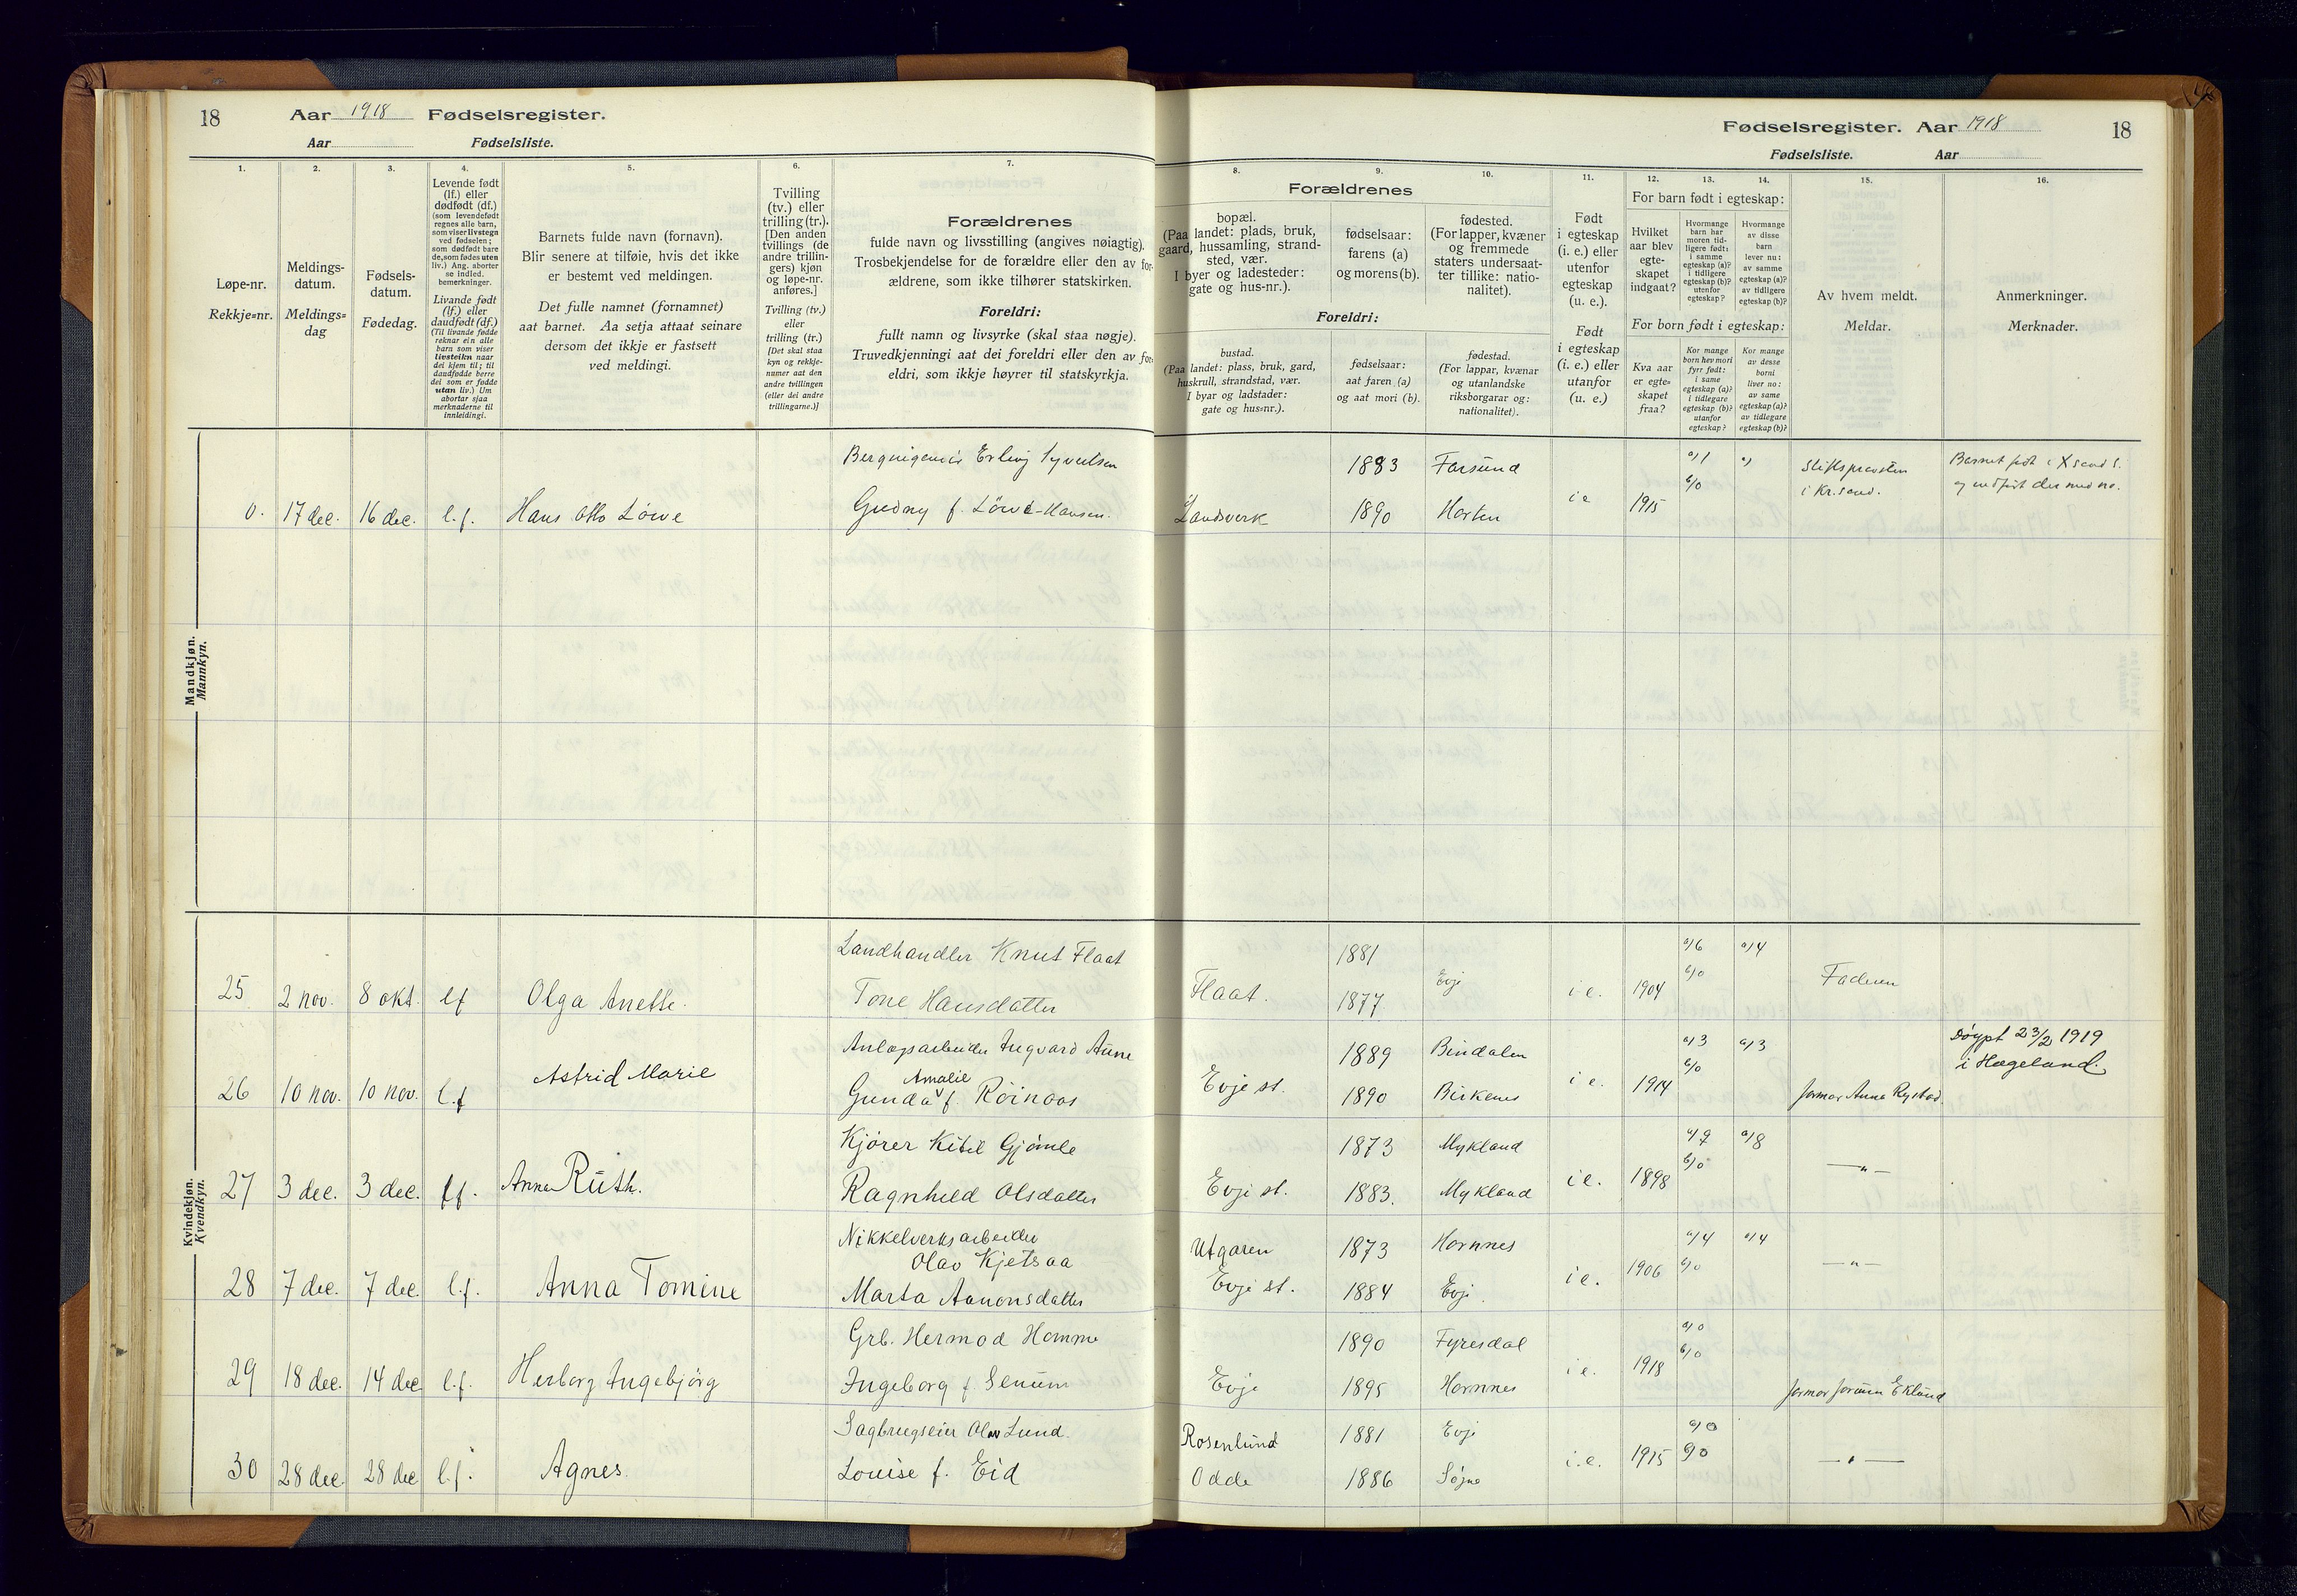 18 Aar 1918 Fødselsregister.
Aar Fødselsliste.
Fødselsregister. Aar 1918 18
Fødselsliste. Aar
1. 2. 3. 4. 5. 6. 7. 8. 9. 10. 11. 12. 13. 14. 15. 16.
Løpe-nr.
Rekkje=nr.
Meldings-
datum.
Meldings=
dag
Fødsels-
datum.
Fødedag.
Levende født
(lf.) eller
dødfødt (df.)
(som levendefødt
regnes alle barn,
som viser livstegn
ved fødselen;
som dødfødt bare
de, som fødes uten
liv.) Ang. aborter
se indled.
bemerkninger.
Livande født
(lf.) eller
daudfødt (df.)
(Til livande fødde
reknar ein alle
barn som viser
livsteikn naar
dei kjem til; til
daudfødde berre
dei som er fødde
utan liv.) Um
abortar sjaa
merknaderne til
innleidingi.
Barnets fulde navn (fornavn).
Blir senere at tilføie, hvis det ikke
er bestemt ved meldingen.
Det fulle namnet (fornamnet)
aat barnet. Aa setja attaat seinare
dersom det ikkje er fastsett
ved meldingi.
Tvilling
(tv.) eller
trilling (tr.).
[Den anden
tvillings (de
andre trillin-
gers) kjøn
og løpe-nr.
anføres.]
Tvilling (tv.)
eller
trilling (tr.)
[Det skal staa
kyn og rekkje-
numer aat den
andre tvillingen
(eller dei andre
trillingarne.)]
Forældrenes
fulde navn og livsstilling (angives nøiagtig).
Trosbekjendelse for de forældre eller den av for-
ældrene, som ikke tilhører statskirken.
Foreldri:
fullt namn og livsyrke (skal staa nøgje).
Truvedkjenningi aat dei foreldri eller den av for-
eldri, som ikkje høyrer til statskyrkja.
Forældrenes
bopæl.
(Paa landet: plads, bruk,
gaard, hussamling, strand-
sted, vær.
I byer og ladesteder:
gate og hus-nr.).
fødselsaar:
farens (a)
og morens (b).
fødested.
(For lapper, kvæner
og fremmede
staters undersaat-
ter tillike: natio-
nalitet).
Foreldri:
bustad.
(Paa landet: plass, bruk, gard,
huskrull, strandstad, vær.
I byar og ladstader:
gate og hus=nr.).
fødselsaar:
aat faren (a)
og aat mori (b).
fødestad.
(For lappar, kvænar
og utanlandske
riksborgarar og:
nationalitet).
Født
i egteskap
(i. e.) eller
utenfor
egteskap
(u. e.).
Født
i egteskap
(i. e.) eller
utanfor
(u. e.)
For barn født i egteskap:
Hvilket
aar blev
egte-
skapet
indgaat?
Hvormange
barn har
moren tid-
ligere født:
i samme
egteskap (a)?
i tidligere
egteskap (b)?
utenfor
egteskap?
Hvormange
av disse
barn
lever nu:
av samme
egteskap (a)?
av tidligere
egteskap (b)?
For born født i egteskap:
Kva aar
er egte-
skapet
fraa?
Kor mange
born hev mori
fyrr født:
i same
egteskap (a)?
i tidlegare
egteskap (b)?
utanfor
egteskap?
Kor mange
av desse
borni
liver no:
av same
egteskap (a)?
av tidlegare
egteskap (b)?
Av hvem meldt.
Meldar.
Anmerkninger.
Merknader.
Mandkjøn.
Mannkyn.
Erling Syvertsen 1883 Farsund a/1 a/ Stiftsprovsten Barnet født i X sand S.
0. 17 dec. 16 dec. l.f. Hans Otto Löwe Gudny f. Löwe-Hansen. Landsverk 1890 Horten i e 1915 b/0 i Kr.sand.
Kvindekjøn.
Kvendkyn.
Landhandler Knut Flaat 1881 a/6 a/4
25 2 nov. 8 okt. lf Olga Anette. Tone Hansdatter Flaat. 1877 Evje i e. 1904 b/0 Faderen
Anlægsarbeider Ingvard Aune 1889 Bindalen a/3 a/3 Døypt 23/2 1919
i Hægeland.
26 10 nov. 10 nov. l.f Astrid Marie Gunda Amalie f. Röinaas Evje st. 1890 Birkenes i e. 1914 b/0 Jormor Anna Rystad.
Kjører Kitil Gjömle 1873 Mykland a/9 a/8
27 3 dec. 3 dec. lf. Anna Ruth. Ragnhild Olsdatter Evje st. 1883. Mykland i e. 1898 b/0 —"—
Nikkelverksarbeider
Olav Kjetsaa Utgaren 1873 Hornnes a/4 a/4
28 7 dec. 7 dec. l.f. Anna Tomine Marta Aanonsdatter Evje st. 1884 Evje i e. 1906 b/0 —"—
Grb. Hermod Homme 1890 Fyresdal a/0
29 18 dec. 14 dec l.f. Herborg Ingebjörg Ingeborg f Senum Evje 1895 Hornnes i e. 1918 b/0 Jormor Jorunn Eklund
Sagbrugseier Olav Lund. Rosenlund 1881 Evje a/0
30 28 dec. 28 dec l.f. Agnes. Louise f. Eid Odde 1886 Søgne i.e. 1915 b/0 —"—